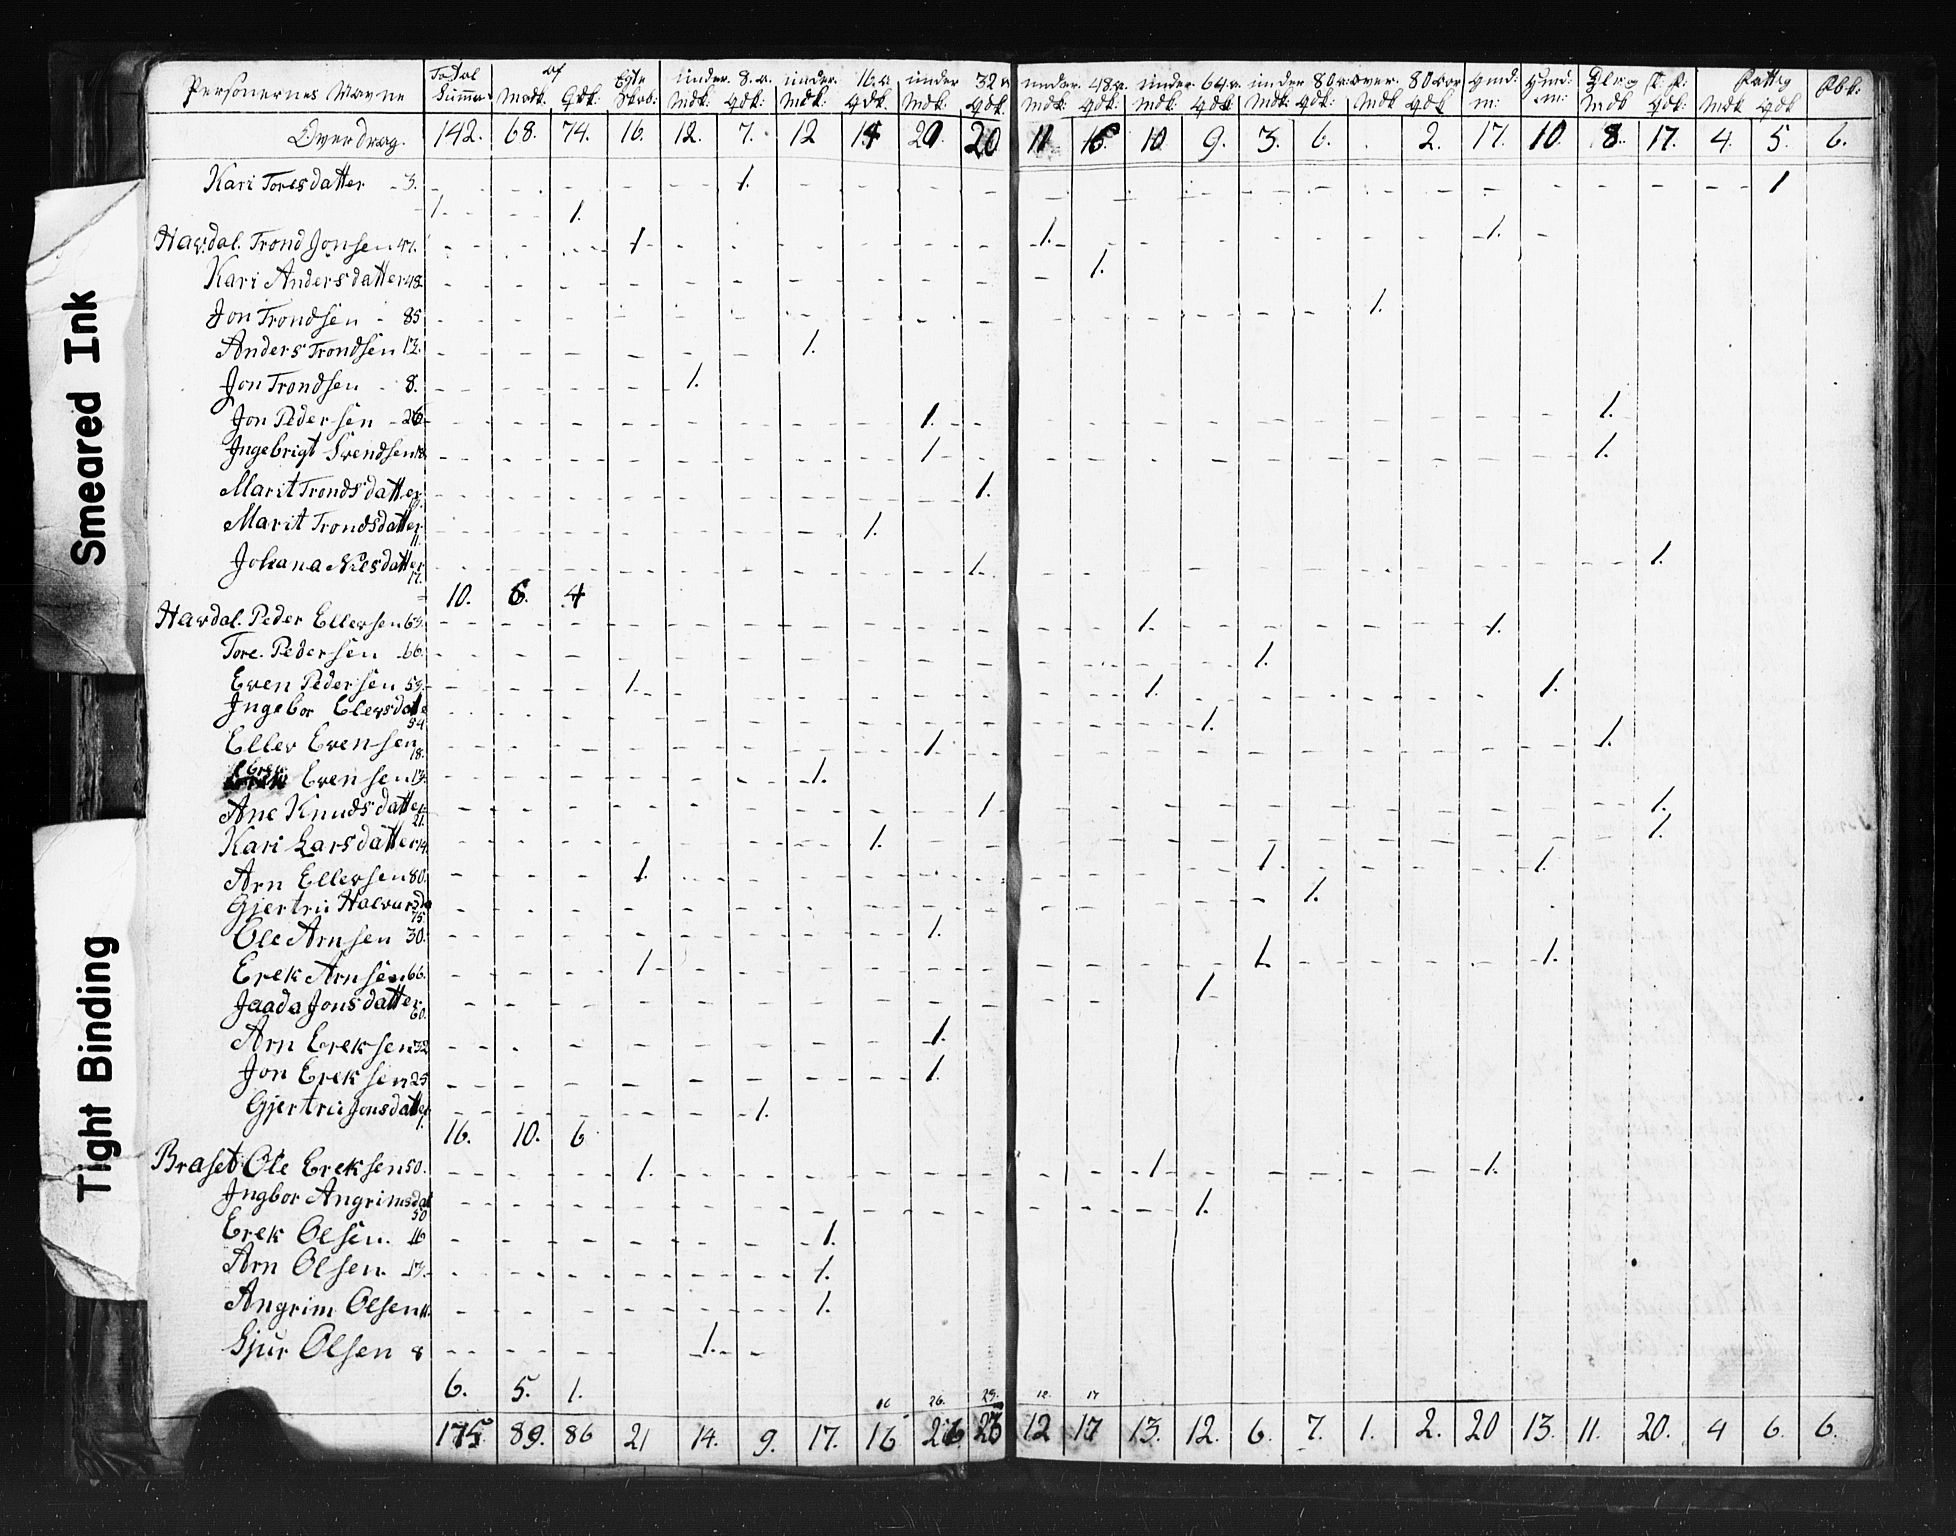 Smeared Ink
Tight Binding
Personernes Navne Total Summa af Mdk. Qdk. Egte under 8. a. Mdk: Qdk: under 16. a. Mdk: Qdk. under 32 a. Mdk: Qdk. under 48. a. Mdk: Qdk: under 64. a. Mdk: Qdk under 80 a. Mdk: Qdk: over 80 aar Mdk Qdk Mdk Qdk: Fattig Mdk Qdk
Overdrag. 142. 68. 74. 16. 12. 7. 12 14 20. 20 11 16 10 9. 3. 6. 2. 17. 10. 8. 17. 4. 5. 6.
Kari Toresdatter 3. 1. 1
1. 1.
Havdal. Trond Jonsen 47. 1 1. 1.
Kari Andersdatter 48. 1.
Jon Trondsen 85 1.
Anders Trondsen 12. 1.
Jon Trondsen 8. 1.
Jon Pedersen 26 1. 1.
Ingebrigt Svendsen 18 1. 1.
Marit Trondsdatter 1.
Marit Trondsdatter 11 1.
Johana Nilsdatter 17. 1. 1.
10. 6. 4
Havdal. Peder Ellevsen 63. 1. 1.
Tore. Pedersen 66. 1.
Even Pedersen 53. 1. 1. 1.
Ingebor Elevsdatte 54 1.
Ellev Evensen 18. 1. 1.
Evensen 13. 1.
Ane Knudsdatter 21. 1 1.
Kari Larsdatter 14. 1. 1.
Arn Ellevsen 80. 1. 1. 1.
Gjertru Halvarsda 75. 1.
Ole Arnsen 30. 1.
Erek Arnsen 66. 1. 1. 1.
Jaada Jonsdatter 60. 1.
Arn Ereksen 32 1.
Jon Ereksen 25 1.
Gjertru Jonsdatter 1. 1.
16. 10. 6
Braset Ole Ereksen 50. 1. 1. 1.
Ingbor Angrimsdat 50 1.
Erek Olsen. 16 1.
Arn Olsen. 13. 1.
Angrim Olsen 11. 1.
Gjur Olsen 8 1.
6. 5. 1.
16 26. 23. 12. 17
175. 89. 86 21 14. 9. 17. 16 26 23 12 17 13. 12. 6. 7. 1. 2. 20 13. 11. 20. 4 6. 6.